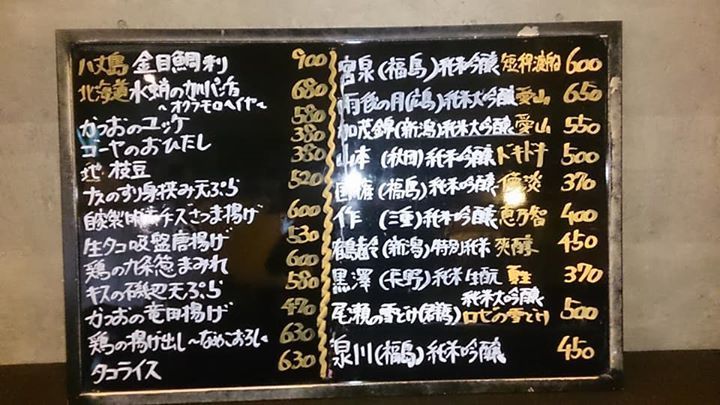 八丈島 金目鯛刺 900
北海道 水蛸のカルパッチョ 680
〜オクラモロヘイヤ〜
かつおのユッケ 580
ゴーヤのおひたし 380
枝豆 380
すり身挟み天ぷら 520
自家製 チーズさつま揚げ 600
生タコ吸盤唐揚げ 530
鶏の九条葱まみれ 600
キスの磯辺天ぷら 580
かつおの竜田揚げ 470
鶏の揚げ出し〜なめこおろし〜 630
タコライス 630
宮泉(福島)純米吟醸 短稈渡船 600
雨後の月(広島)純米大吟醸 愛山 650
加茂錦(新潟)純米大吟醸 愛山 550
山本(秋田)純米吟醸 ドキドキ 500
国権(福島)純米吟醸 370
作(三重)純米吟醸 恵乃智 400
鶴齢(新潟)特別純米 爽醇 450
黒澤(長野)純米生酛 夏生 370
純米大吟醸
尾瀬の雪どけ(群馬) ロゼの雪どけ 500
泉川(福島)純米吟醸 450